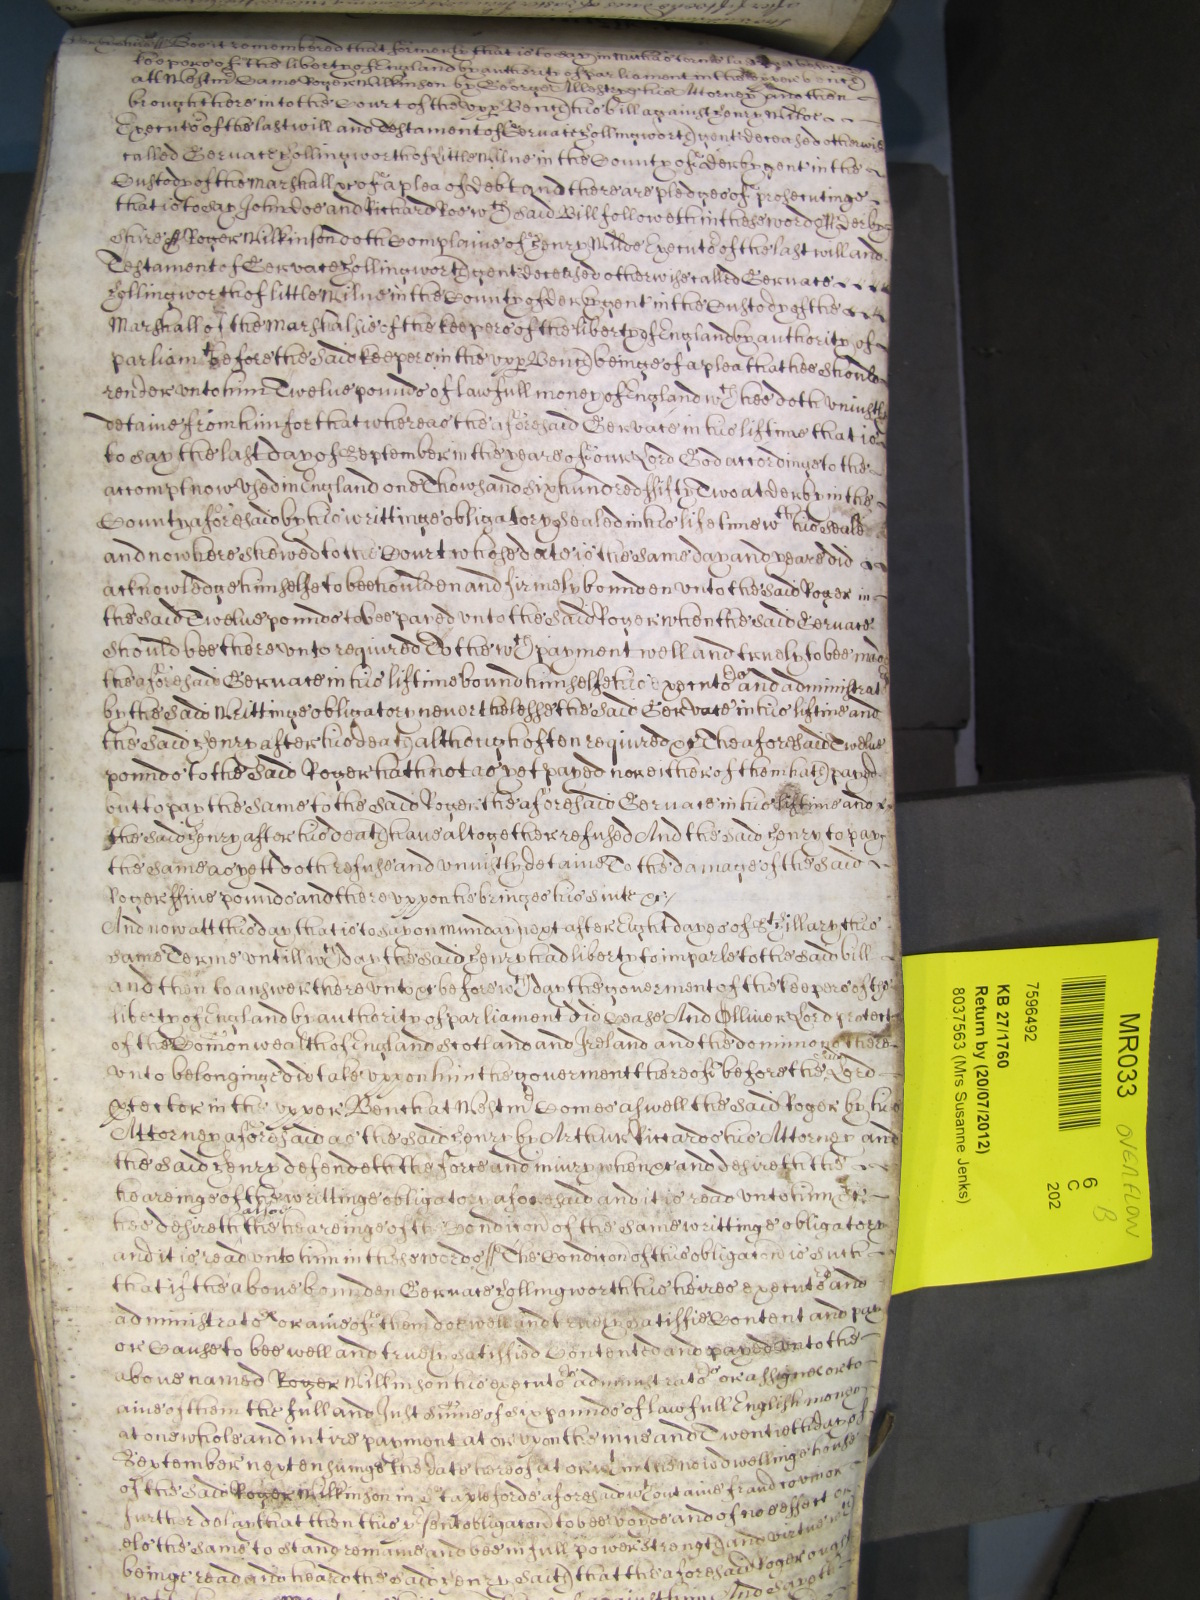 Beeit remembered that formerly that is to say in Michas terme last before the
keepers of the libertye of England by authority of parliament in the upper bench
att Westmr Came Roger Wilkinson by George his Attorney and then
brought here into the Court of the upp Bench his bill against Henry Milde
Executor of the last will and Testament of Gervace Hollingworth gent deceased otherwise
called Gervace Hollingworth of little Milne in the County of Derby gent in the
Custody of the Marshall &c of a plea of debt and there are pledges of prosecutinge
that is to say John Doe and Richard Roe wch said Bill followeth in these words Derby
shire ss Roger Wilkinson doth Complaine of Henry Milde Executor of the last will and
Testament of Gervace Hollingworth gent deceased otherwise called Gervace
Hollingworth of little Milne in the County of Derby gent in the Custody of the
Marshall of the Marshalsie of the keepers of the liberty of England by authority of
parliamt before the said keepers in the upp Bench beinge of a plea that hee should
render unto him Twelve pounds of lawfull money of England wch hee doth uniustly
detaine from him for that whereas the aforesaid Gervace in his liftime that is
to say the last day of September in the yeare of our Lord God accordinge to the
accompt now used in England one Thowsand six hundred fifty Two at Derby in the
County aforesaid by his writtinge obligatory Sealed in his life time wth his Seale
and now here shewed to the Court whose date is the same day and yeare did
acknowledge himselfe to bee houlden and firmely bounden unto the said Roger in
the said Twelve pounds to bee payed unto the said Roger when the said Gervace
should bee thereunto required To the wch payment well and truely to bee made
the aforesaid Gervace in his liftime bound himselfe his executors and administrators
by the said Writtinge obligatory neverthelesse the said Gervace in his liftime and
the said Henry after his death although often required &c The aforesaid Twelve
pounds to the said Roger hath not as yet payed nor either of them hath payed
but to pay the same to the said Roger the aforesaid Gervace in his liftime and
the said Henry after his death have altogether refused And the said Henry to pay
the same as yett doth refuse and uniustly detaine To the damage of the said
Roger ffive pounds and thereuppon he bringes his suite &c
And now att this day that is to say on Munday next after Eight dayes of St Hillary this
same Terme untill wch day the said Henry had liberty to imparle to the said bill
and then to answer thereunto &c before wch day the goverment of the keepers of the
liberty of England by authority of parliament did Cease And Olliver Lord Protector
of the Comonwealth of England Scotland and Ireland and the dominions there
unto belonginge did take uppon him the goverment thereof before the said Lord
Protector in the upper Bench at Westmr Comes aswell the said Roger by his
Attorney aforesaid as the said Henry by Arthur Riccards his Attorney and
the said Henry defendeth the force and iniury when &c and desireth the
heareinge of the writtinge obligatory aforesaid and it is read unto him &c
hee desireth also the heareinge of the Condicon of the same writtinge obligatory
and it is read unto him in these words ss The Condicon of this obligacon is such
that if the above bounden Gervace Hollingworth his heires executors and
administrators or anie of them doe well and truely satisfie Content and pay
or Cause to bee well and truely satisfied Contented and payed unto the
above named Roger Wilkinson his executors administrators or assignes or to
anie of them the full and Just sume of six pounds of lawfull English money
at one whole and intire payment at or upon the nine and Twentieth day of
September next ensuinge the date hereof at or in the now dwellinge house
of the said Roger Wilkinson in aforesaid wthout anie fraud covin or
further delay that then this psent obligacon to bee voyde and of noe effect or
els the same to stand remaine and bee in full power strength and virtue wch
beinge read and heard the said Henry saith that the aforesaid Roger ought
MR033 OVERFLOW
B
6
C
202
7596492
KB 27/1760
Return by (20/07/2012)
8037563 (Mrs Susanne Jenks)